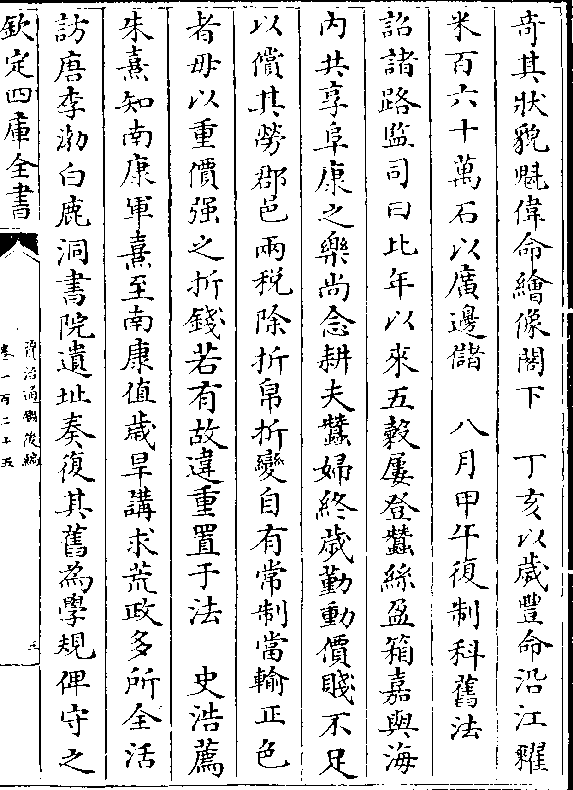 竒其狀貌魁偉命繪像閣下　丁亥以歲豐命沿江糴
米百六十萬石以廣邊儲　八月甲午復制科舊法
詔諸路監司曰比年以來五榖屢登蠶絲盈箱嘉與海
内共享阜康之樂尚念耕夫蠶婦終歲勤動價賤不足
以償其勞郡邑兩税除折帛折變自有常制當輸正色
者毋以重價强之折錢若有故違重置于法　史浩薦
朱熹知南康軍熹至南康值歲旱講求荒政多所全活
訪唐李渤白鹿洞書院遺址奏復其舊為學規俾守之
欽定四庫全書
資治通鑑後編
卷一百二十五
三